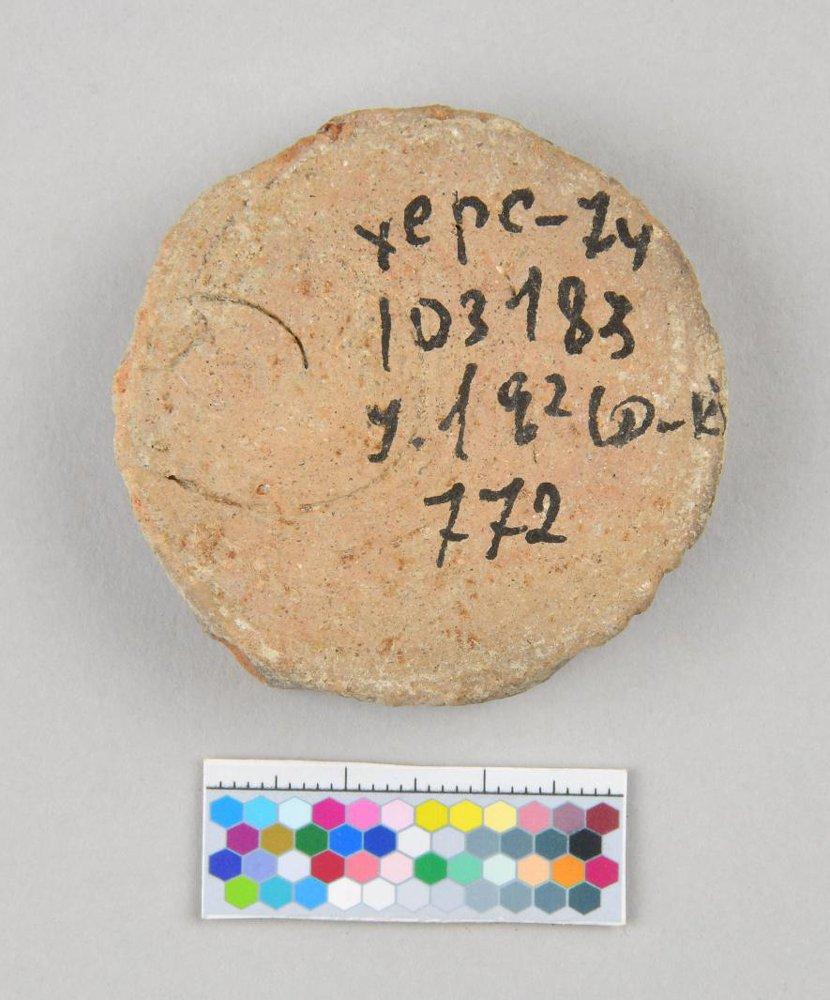 херс-74
103183
у.1 92 (Ф-К)
772